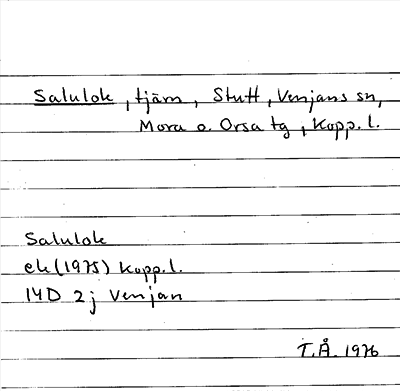 Salulok, tjärn, Stutt, Venjans sn,
Mora o. Orsa tg, Kopp. l.
Salulok
ek (1975) Kopp. l.
14D 2j Venjan
T.Å. 1976